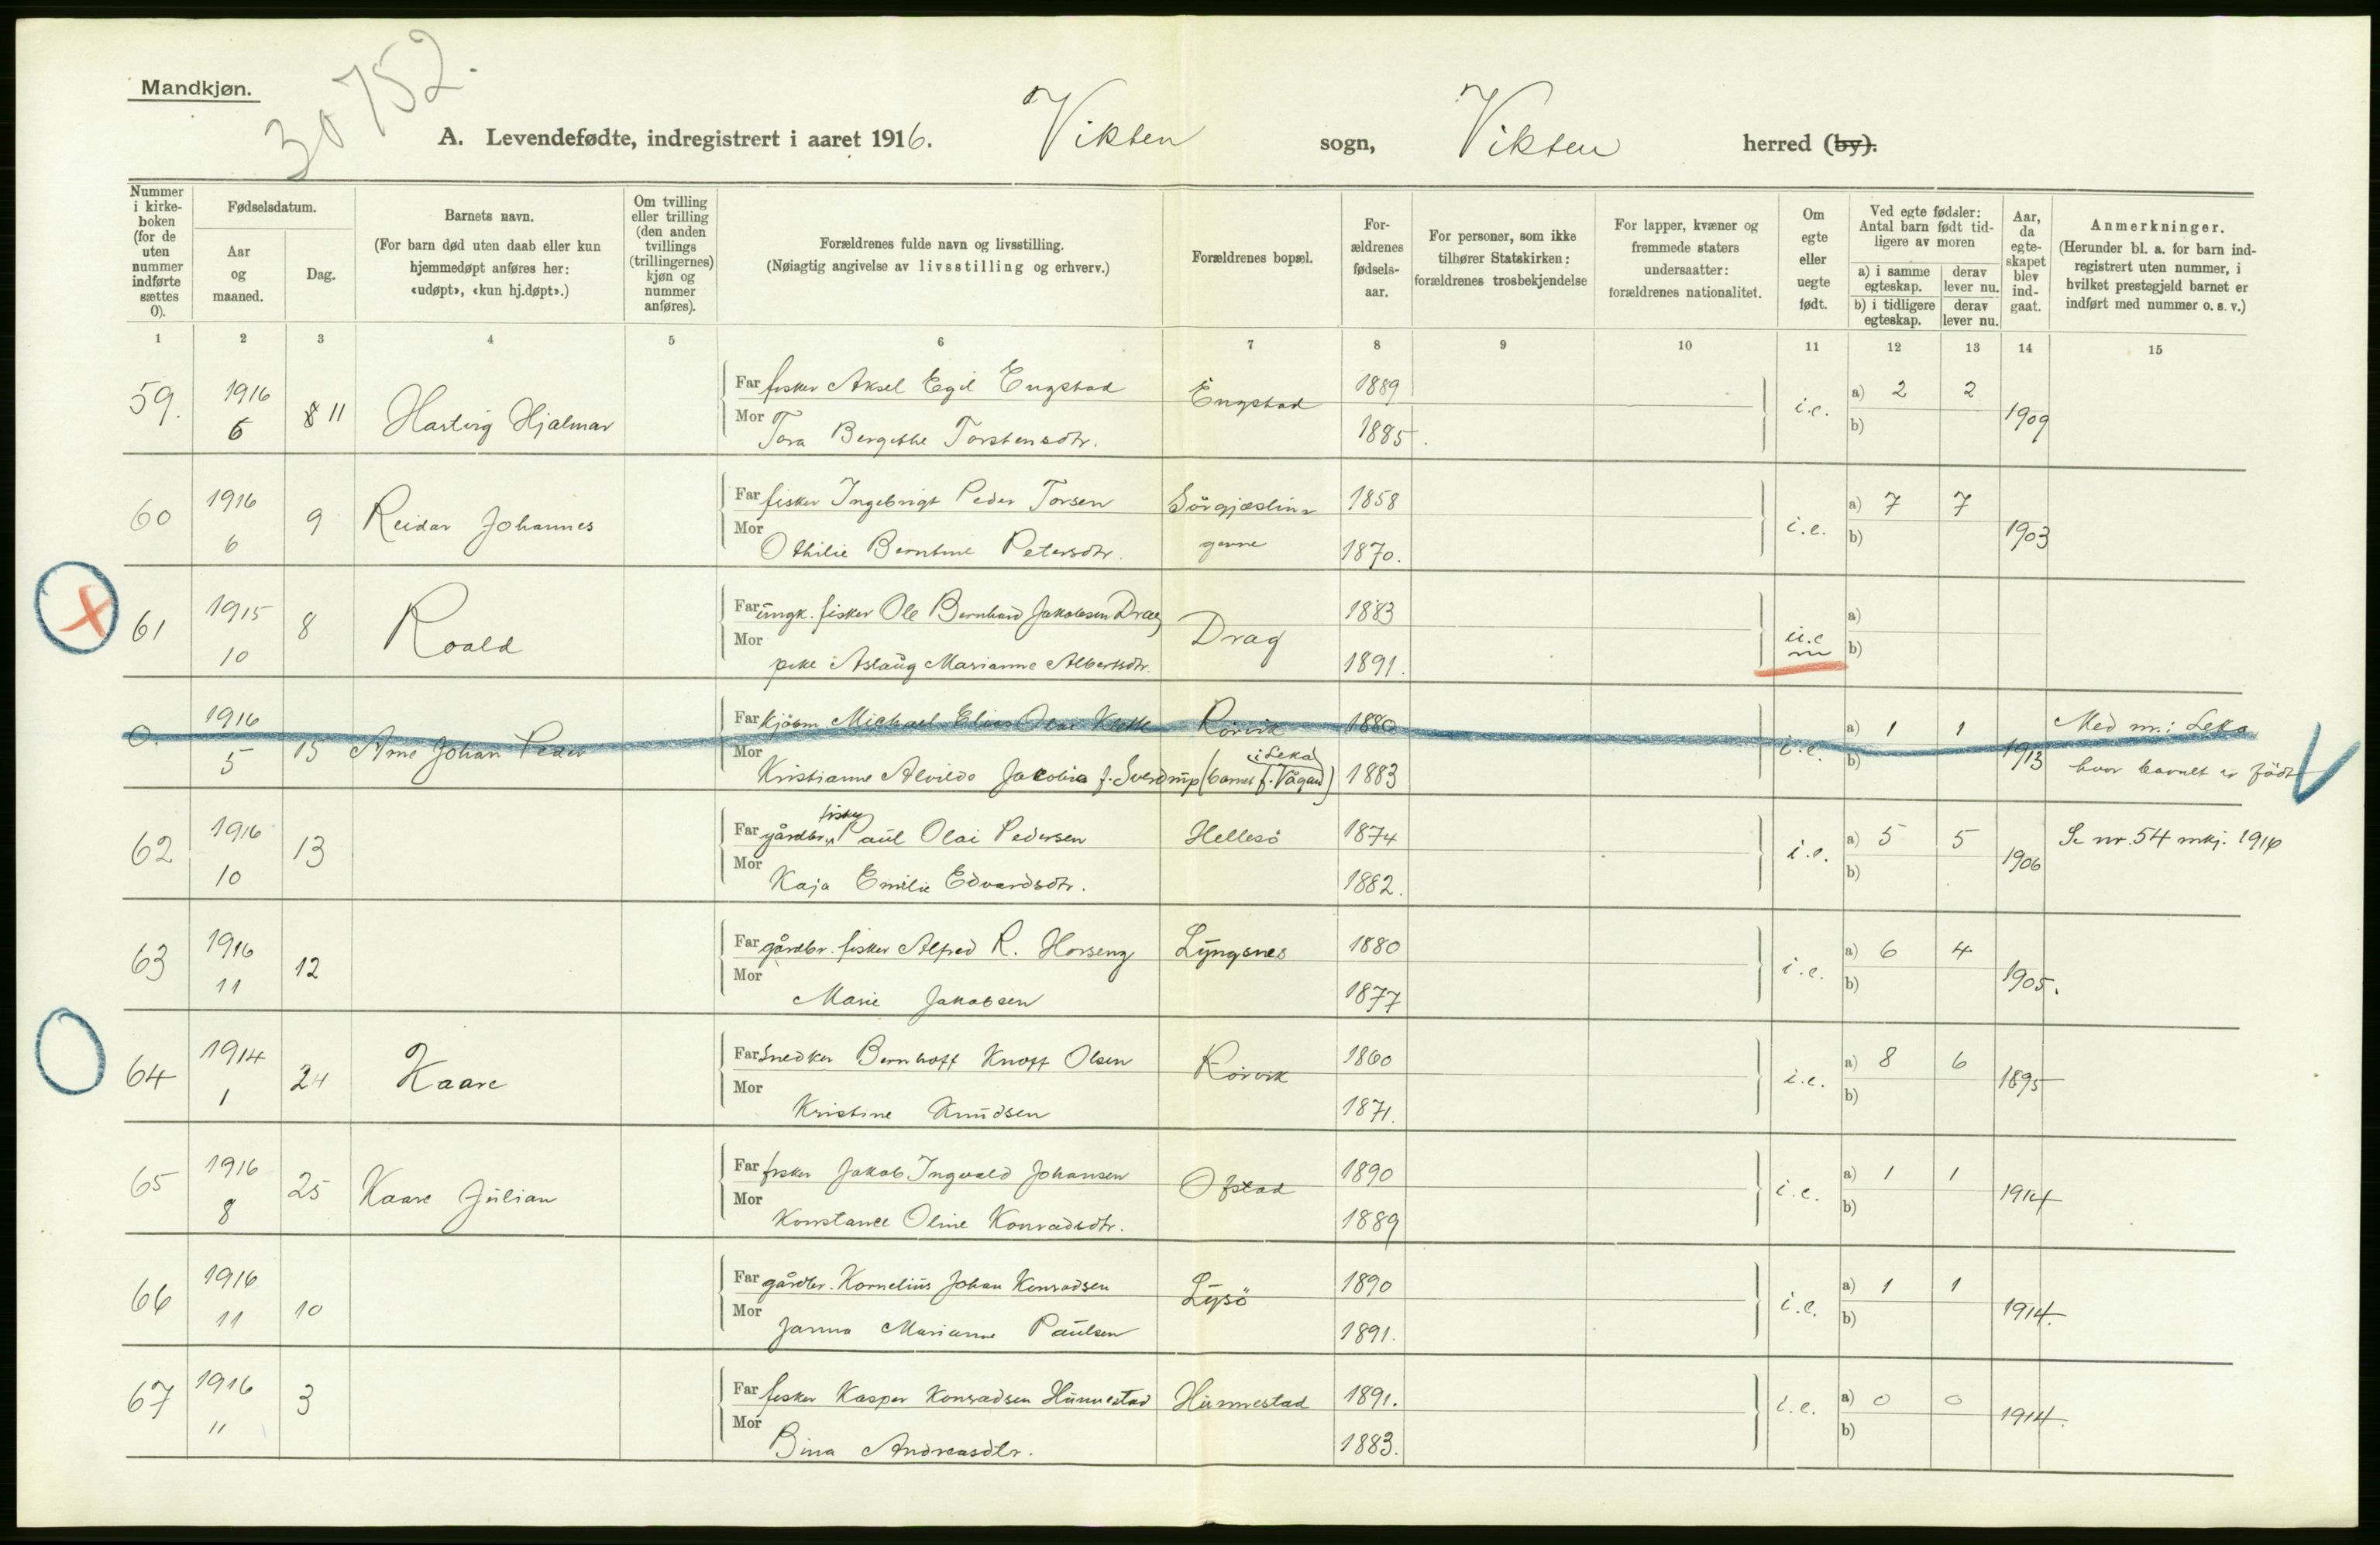 Mandkjøn.
30752.
A. Levendefødte, indregistrert i aaret 1916. Vikten sogn, Vikten herred (by).
Nummer i kirkeboken (for de uten nummer indførte sættes 0).
Fødselsdatum.
Aar og maaned.
Dag.
Barnets navn.
(For barn død uten daab eller kun hjemmedøpt anføres her: «udøpt», «kun hj.døpt».)
Om tvilling eller trilling (den anden tvillings (trillingernes) kjøn og nummer anføres).
Forældrenes fulde navn og livsstilling.
(Nøiagtig angivelse av livsstilling og erhverv.)
Forældrenes bopæl.
Forældrenes fødselsaar.
For personer, som ikke tilhører Statskirken: forældrenes trosbekjendelse
For lapper, kvæner og fremmede staters undersaatter: forældrenes nationalitet.
Om egte eller uegte født.
Ved egte fødsler: Antal barn født tidligere av moren
a) i samme egteskap. derav lever nu.
b) i tidligere egteskap. derav lever nu.
Aar, da egteskapet blev indgaat.
Anmerkninger.
(Herunder bl. a. for barn indregistrert uten nummer, i hvilket prestegjeld barnet er indført med nummer o. s. v.)
1 2 3 4 5 6 7 8 9 10 11 12 13 14 15
59. 1916 6 8 11 Hartvig Hjalmar Far fisker Aksel Egil Engstad Engstad 1889 i.e. a) 2 2 1909
Mor Tora Bergitte Torstensdtr. 1885. b)
60 1916 6 9 Reidar Johannes Far fisker Ingebrigt Peder Torsen Sörgjæslingerne 1858 i.e. a) 7 7 1903
Mor Othilie Berntine Petersdtr. 1870. b)
61 1915 10 8 Roald Far ungk. fisker Ole Bernhard Jakobsen Drag Drag 1883 u.e a)
Mor pike Aslaug Marianne Albertsdtr. 1891. b)
0. 1916 5 15 Arne Johan Peder Far kjöbm. Michael Elias Olai Rörvik 1880 i.e. a) 1 1 1913 Med nr. i Leka
Mor Kristianne Alvilde Jacobia f. Sverdrup (barnet f. Vågan i Leka) 1883 b) hvor barnet er födt
62 1916 10 13 Far gårdbr., fisker Paul Olai Pedersen Hellesö 1874 i.e. a) 5 5 1906 Se nr. 54 mkj. 1916
Mor Kaja Emilie Edvardsdtr. 1882. b)
63 1916 11 12 Far gårdbr. fisker Alfred R. Horseng Lyngsnes 1880 i.e. a) 6 4 1905.
Mor Marie Jakobsen 1877 b)
64 1914 1 24 Kaare Far Snedker Bernhoff Knoff Olsen Rörvik 1860 i.e. a) 8 6 1895
Mor Kristine Knudsen 1871. b)
65 1916 8 25 Kaare Julian Far fisker Jakob Ingvald Johansen Ofstad 1890 i.e. a) 1 1 1914
Mor Konstance Oline Konradsdtr. 1889 b)
66 1916 11 10 Far gårdbr. Kornelius Johan Konradsen Lysö 1890 i.e. a) 1 1 1914.
Mor Janna Marianne Paulsen 1891. b)
67 1916 11 3 Far fisker Kasper Konradsen Hunnestad Hunnestad 1891. i.e. a) 0 0 1914.
Mor Bina Andreasdtr. 1883. b)